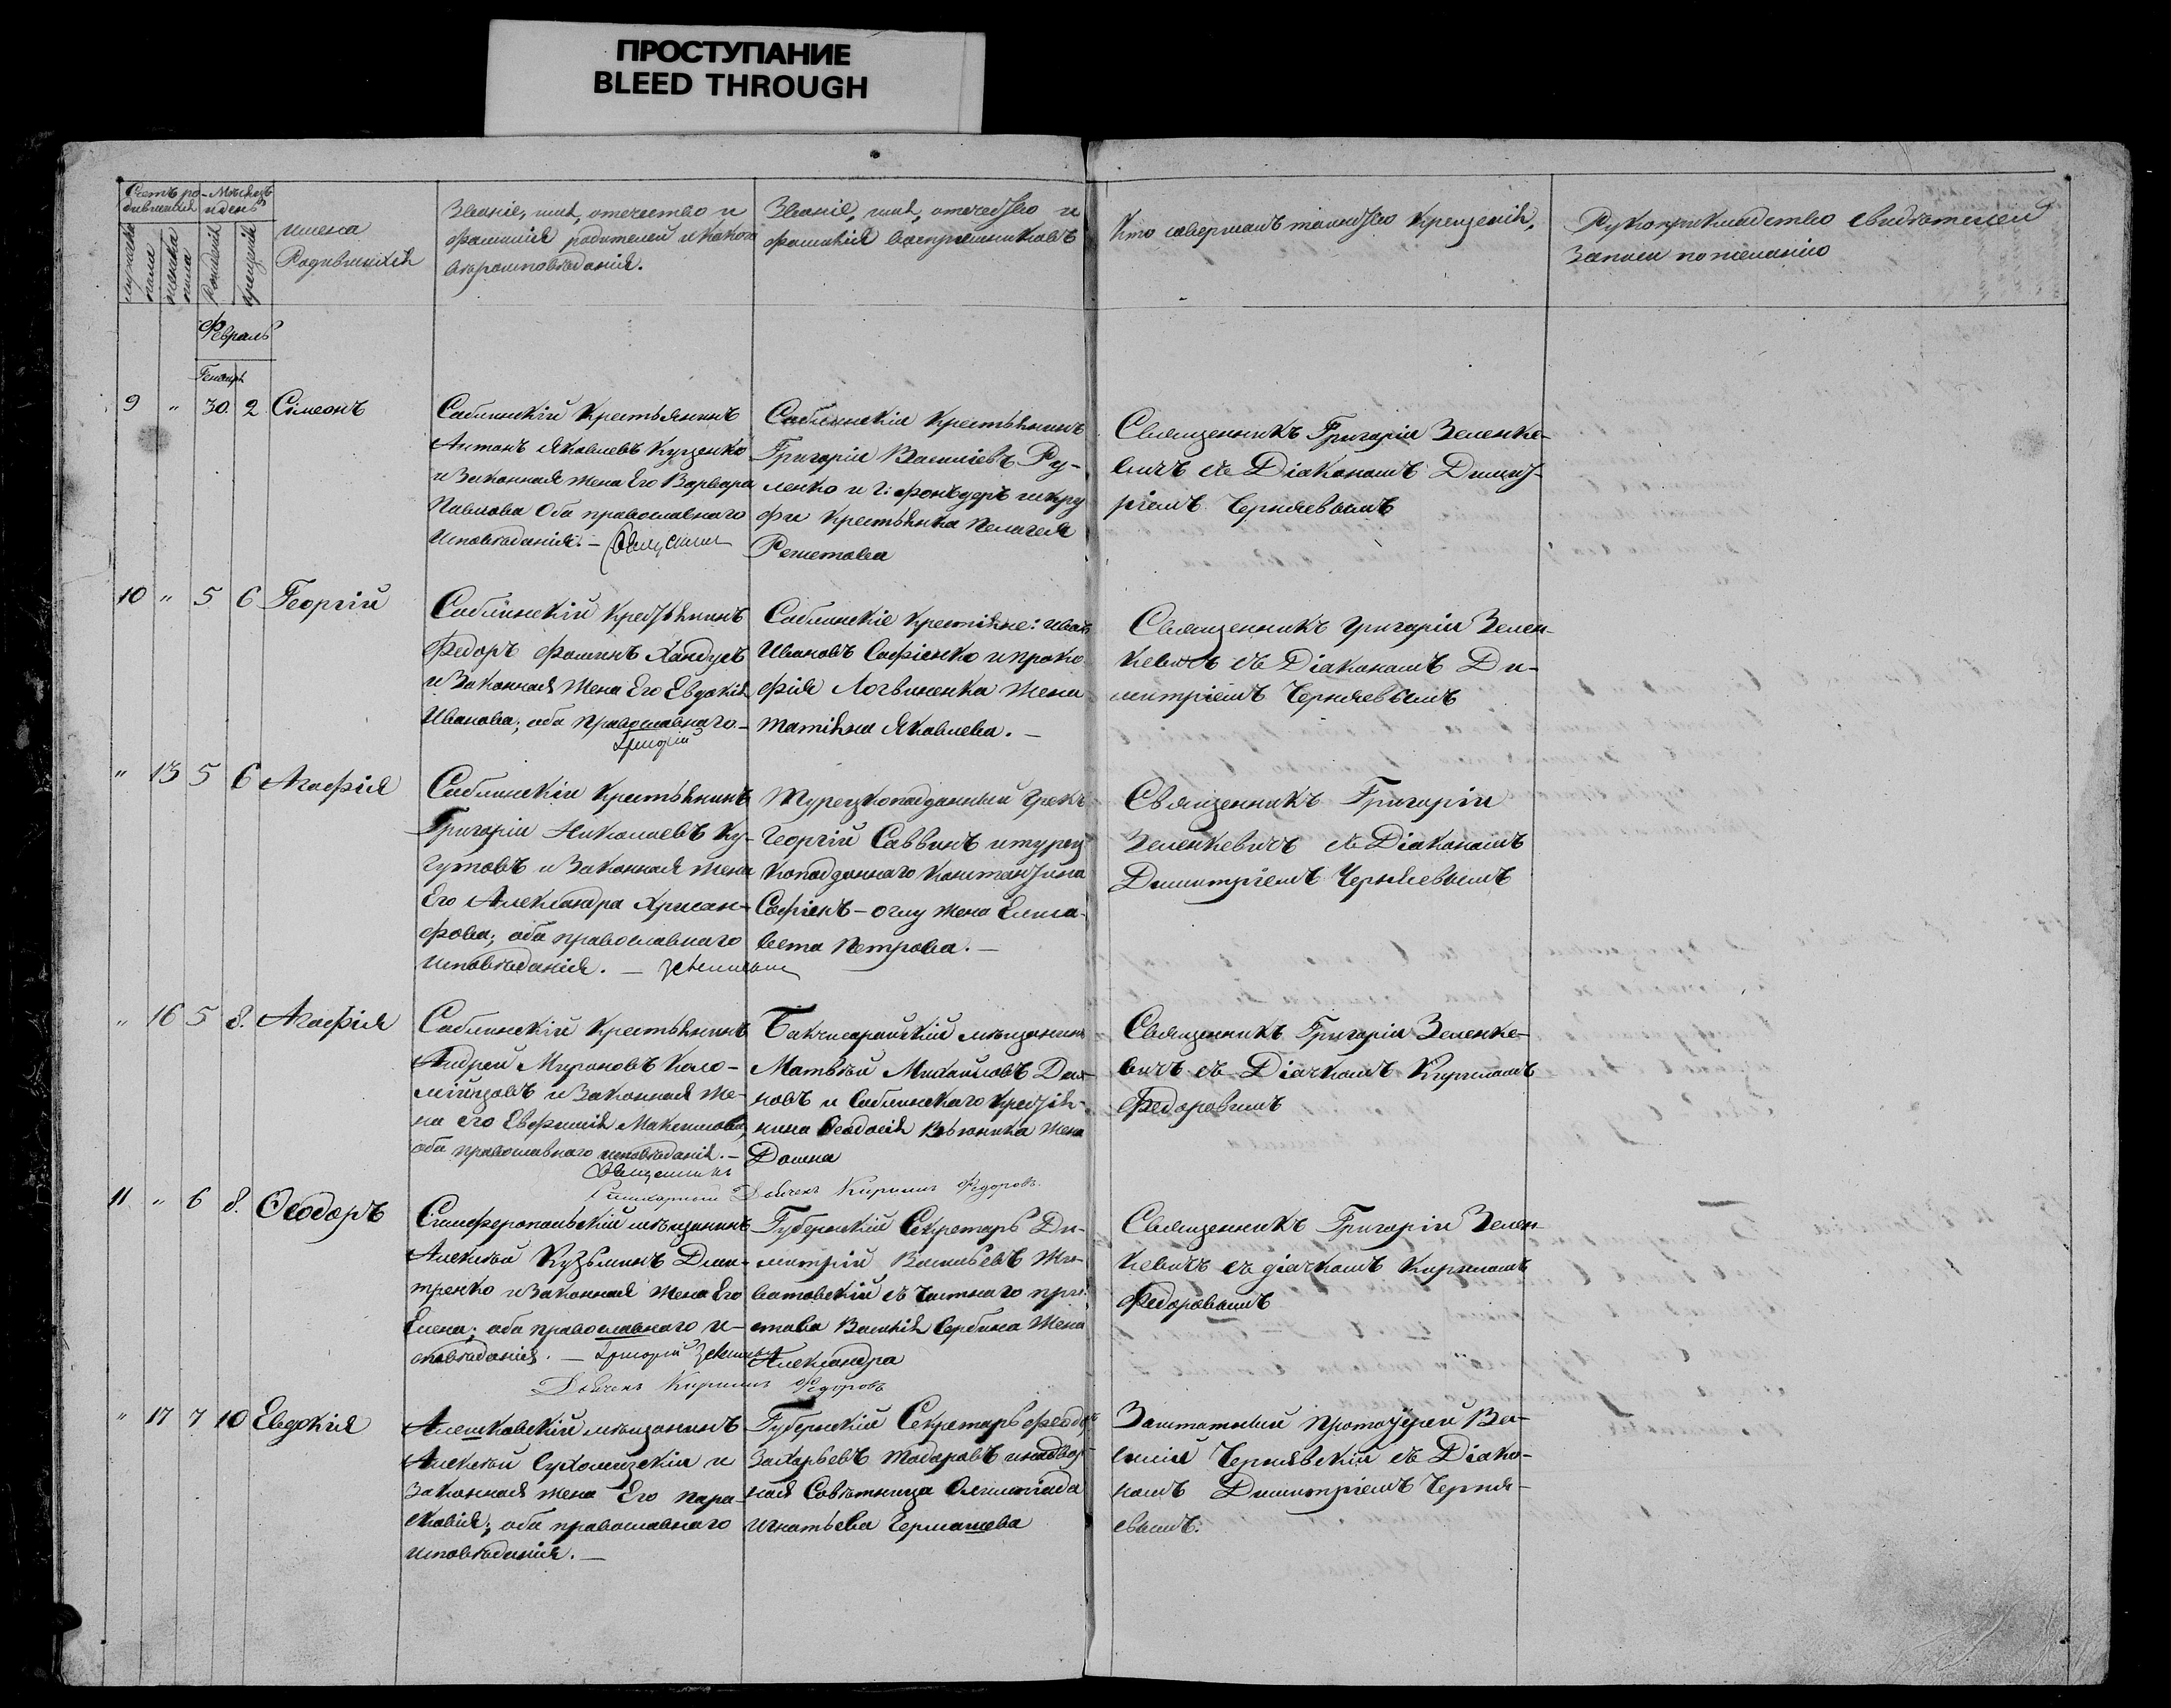 ПРОСТУПАНИЕ
BLEED THROUGH
Счетъ ро-
дившихся
Мѣсяцъ
и день
мужеска
пола
женска
пола
рожденія
крещенія
имена
Родившихся
Званіе, имя, отечество и
фамилія родителей и какого
вѣроисповѣданія.
Званіе, имя, отечество и
фамилія воспріемниковъ
Кто совершалъ таинство крещенія,
Рукоприкладство свидѣтелей
записи по желанію
Февраль
Генварь
9 " 30 2 Сімеонъ
Саблинскій Крестьянинъ
Антонъ Яковлевъ Куценко
и Законная жена Его Варвара
Павлова Оба православнаго
Исповѣданія. –
Саблинскій Крестьянинъ
Григорій Василіевъ Ру-
ленко и
Крестьянка Пелагея
Решетова
Священникъ Григорій Зеленке-
вичъ съ Діакономъ Димит-
ріемъ Черняевымъ
10 " 5 6 Георгій
Саблинскій Крестьянинъ
Федоръ Фоминъ
и Законная Жена Его Евдокія
Иванова; оба православнаго –
Григорій
Саблинскіе Крестьяне: Иванъ
Ивановъ Софіенко и Проко
фія Логвиненка Жена
Татіяна Яковлева. –
Священникъ Григорій Зелен-
кевичъ съ Діакономъ Ди-
митріемъ Черняевымъ
" 13 5 6 Агафія
Саблинскій Крестьянинъ
Григорій Николаевъ Ку-
гутовъ и Законная жена
Его Александра Хрисан-
фова; оба православнаго
исповѣданія. –
Турецкоподданный Грекъ
Георгій Саввинъ и турец
коподданнаго Константина
Софіенъ – оглу жена Елиса-
вета Петрова. –
Священникъ Григорій
Зеленкевичъ съ Діакономъ
Димитріемъ Черняевымъ
" 16 5 8. Агафія
Саблинскій Крестьянинъ
Андрей Мироновъ Коло-
мійцовъ и Законная Же-
на его Евфимія Максимова,
оба православнаго исповѣданія. –
Священникъ
Бакчисарайскій мѣщанинъ
Матвѣй Михайловъ
новъ и Саблинскаго Крестья-
нина Ѳеодосія Вьюника жена
Домна
Дьячекъ Кирилъ Федоровъ
Священникъ Григорій Зеленке-
вичъ съ Діячкомъ Кириломъ
Федоровымъ
11 " 6 8. Ѳеодоръ
Симферопольскій мѣщанинъ
Алексѣй Кузьминъ Дми-
тренко и Законная жена Его
Елена; оба православнаго и-
сповѣданія. – Григорій
Губернскій Секретарь Ди-
митрій Васильевъ Жи-
ватовскій съ Частнаго при-
става Василія Сербина Жена
Александра
Дьячекъ Кирилъ Федоровъ
Священникъ Григорій Зелен-
кевичъ съ діячкомъ Кириломъ
Федоровымъ
" 17 7 10 Евдокія
Алешковскій мѣщанинъ
Алексѣй Сухомизскій и
Законная жена Его Пара-
сковія; оба православнаго
исповѣданія. –
Губернскій Секретарь Феодоръ
Захарьевъ Тодоровъ и надвор
ная Совѣтница Олимпіада
Игнатьева Гермашева
Заштатный Протоіерей Ва-
силій Чернявскій съ Діако-
номъ Димитріемъ Черня-
евымъ.